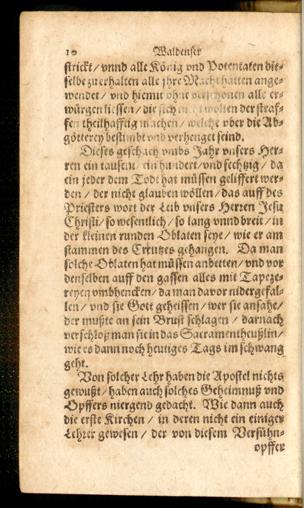 10 Waldenser
strickt / vnnd alle König vnd Potentaten die-
selbe zu erhalten alle jhre Macht hatten ange-
wendet / vnd hiemit ohne verschonen alle er-
würgen liessen / die sich nit wolten der straf-
fen theilhafftig machen / welche vber die Ab-
götterey bestimbt vnd verhenget seind.
Dieses geschach vmbs Jahr vnsers Her-
ren ein tausent / ein hundert / vnd sechtzig / da
ein jeder dem Todt hat müssen geliffert wer-
den / der nicht glauben wöllen / das auff des
Priesters wort der Leib vnsers Herren Jesu
Christi / so wesentlich / so lang vnnd breit / in
der kleinen runden Oblaten seye / wie er am
stammen des Creutzes gehangen. Da man
solche Oblaten hat müssen anbetten / vnd vor
denselben auff den gassen alles mit Tapeze-
reyen vmbhencken / da man davor nidergefal-
len / vnd sie Gott geheissen / wer sie ansahe /
der mußte an sein Brust schlagen / darnach
verschloß man sie in das Sacramentheußlin /
wie es dann noch heutiges Tags im schwang
geht.
Von solcher Lehr haben die Apostel nichts
gewußt / haben auch solches Geheimnuß vnd
Opffers niergend gedacht. Wie dann auch
die erste Kirchen / in deren nicht ein einiger
Lehrer gewesen / der von diesem Versühn-
opffer